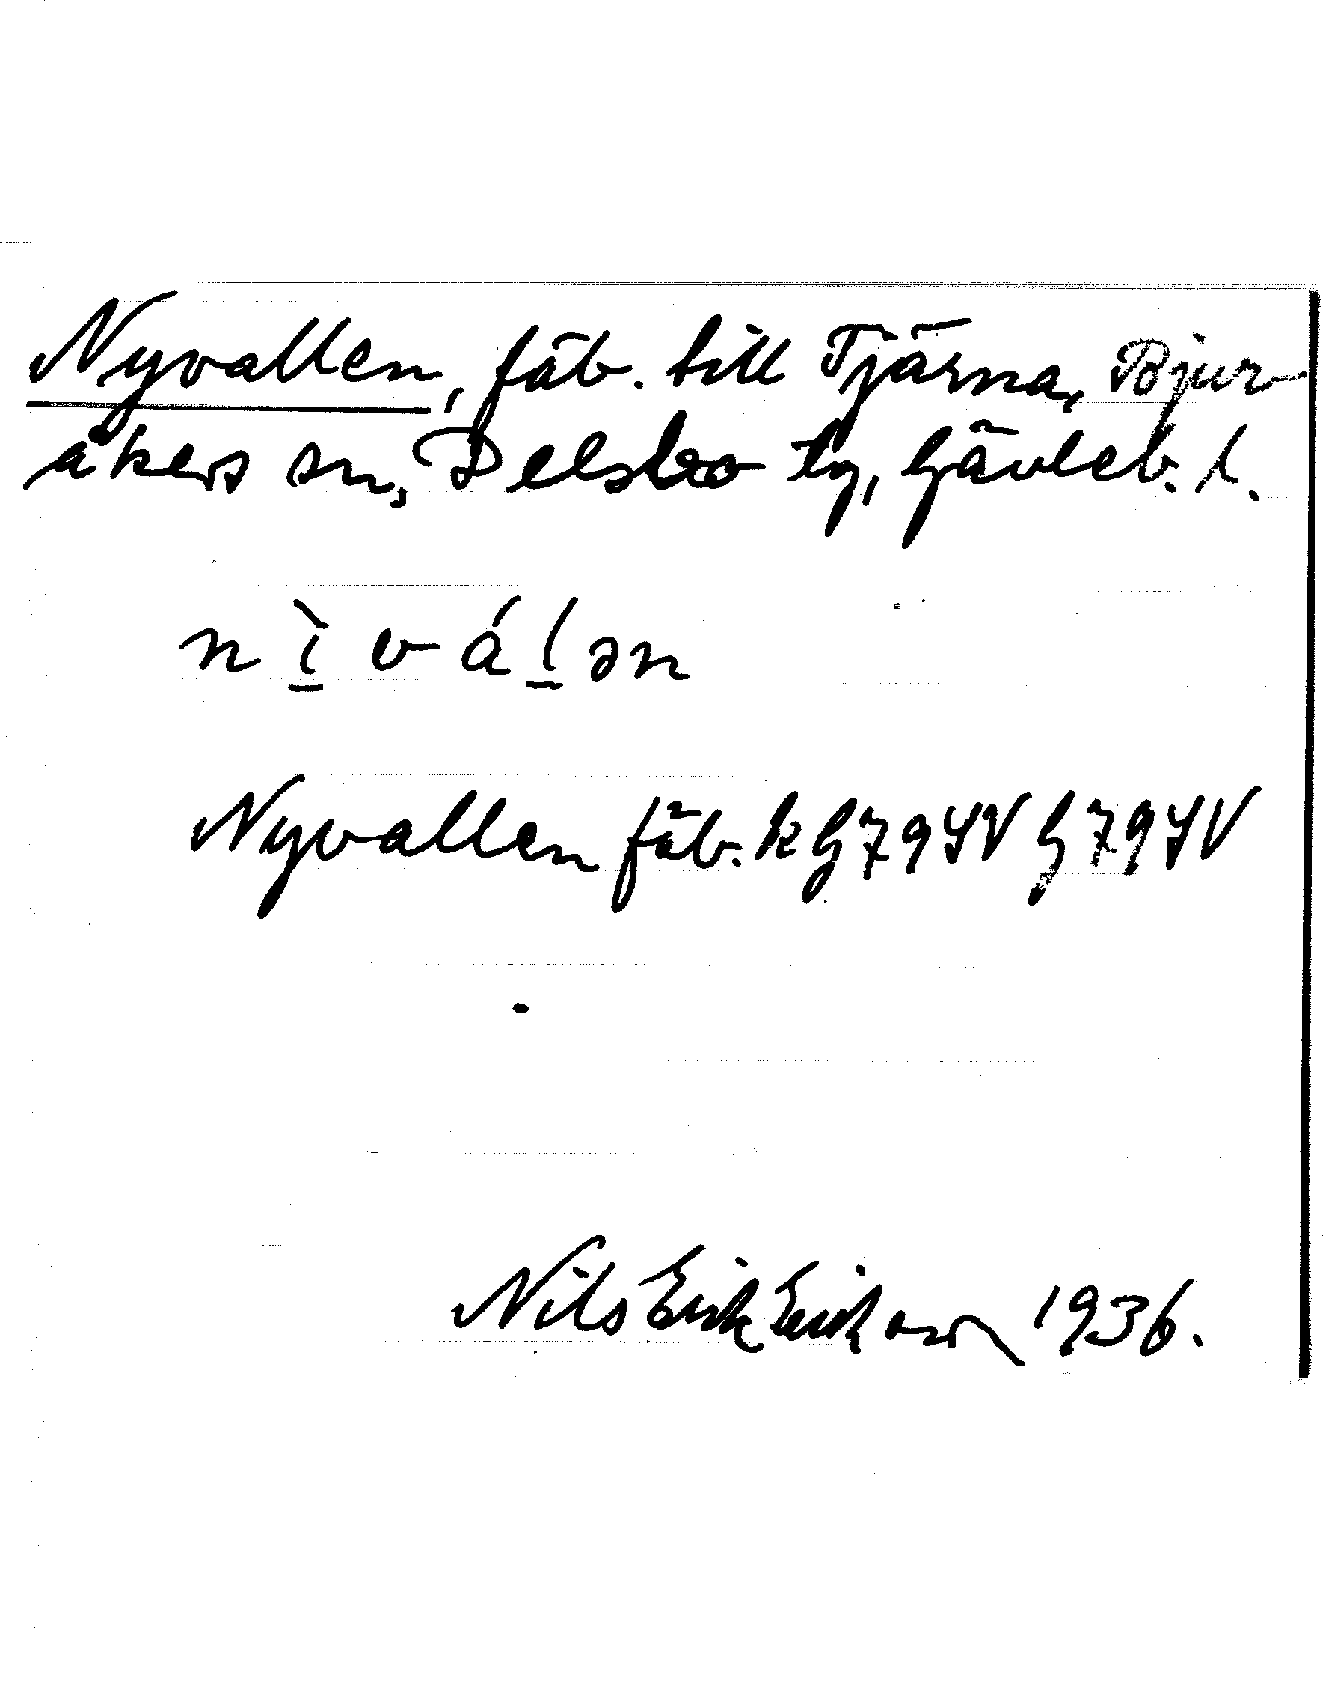 Nyvallen, fäb. till Tjärna, Bjur-
åkers sn, Delsbo tg, Gävleb. l.
n ì̱ v á ḻ ə n
Nyvallen fäb. k G 79 SV G 79 SV
Nils Erik Erikson 1936.